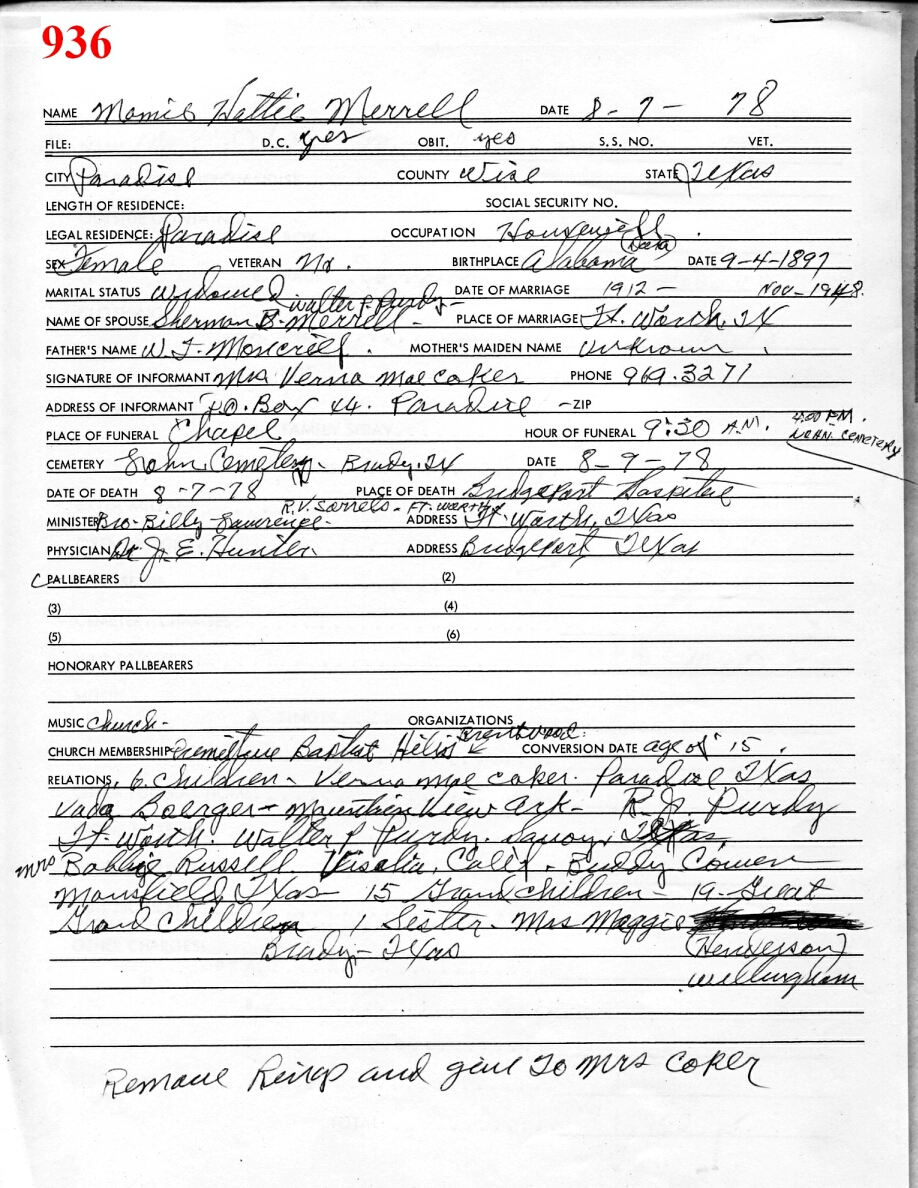 936
NAME Mamie Hattie Merrell DATE 8-7-78
FILE: D.C. yes OBIT. yes S.S. NO. VET.
CITY Paradise COUNTY Wise STATE Texas
LENGTH OF RESIDENCE: SOCIAL SECURITY NO.
LEGAL RESIDENCE: Paradise OCCUPATION Housewife
SEX Female VETERAN No. BIRTHPLACE Alabama DATE 9-4-1897
MARITAL STATUS Widowed Walter P. Purdy- DATE OF MARRIAGE 1912 - Nov-1948
NAME OF SPOUSE Sherman B. Merrell - PLACE OF MARRIAGE Ft. Worth, TX
FATHER'S NAME W. T. Moncrief. MOTHER'S MAIDEN NAME Unknown
SIGNATURE OF INFORMANT Mrs Verna Mae Coker PHONE 969.3271
ADDRESS OF INFORMANT P.O. Box 44. Paradise -ZIP
PLACE OF FUNERAL Chapel HOUR OF FUNERAL 9:30 A.M. 4:00 P.M.
LOHN CEMETERY
CEMETERY Lohn Cemetery- Brady, TX DATE 8-9-78
DATE OF DEATH 8-7-78 PLACE OF DEATH Bridgeport Hospital
R.V. Sorrels- FT. WORTH
MINISTER Bro. Billy Lawrence- ADDRESS Ft. Worth, Texas
PHYSICIAN Dr. J. E. Hunter. ADDRESS Bridgeport Texas
PALLBEARERS (2)
(3) (4)
(5) (6)
HONORARY PALLBEARERS
MUSIC Church- ORGANIZATIONS
Brentwood
CHURCH MEMBERSHIP Primitive Baptist CONVERSION DATE age of 15.
RELATIONS, 6. Children- Verna Mae Coker. Paradise Texas
Vada Boerger- Mountain View Ark- R. J. Purdy
Ft. Worth. Walter P Purdy. Savoy, Texas
Mrs Bobbie Russell Visalia, Calif. Buddy Cowen
Mansfield, Texas- 15 Grand Children- 19- Great
Grand Children 1 Sister- Mrs Maggie
Brady- Texas (Henderson)
Willingham
Remove Rings and give to Mrs Coker